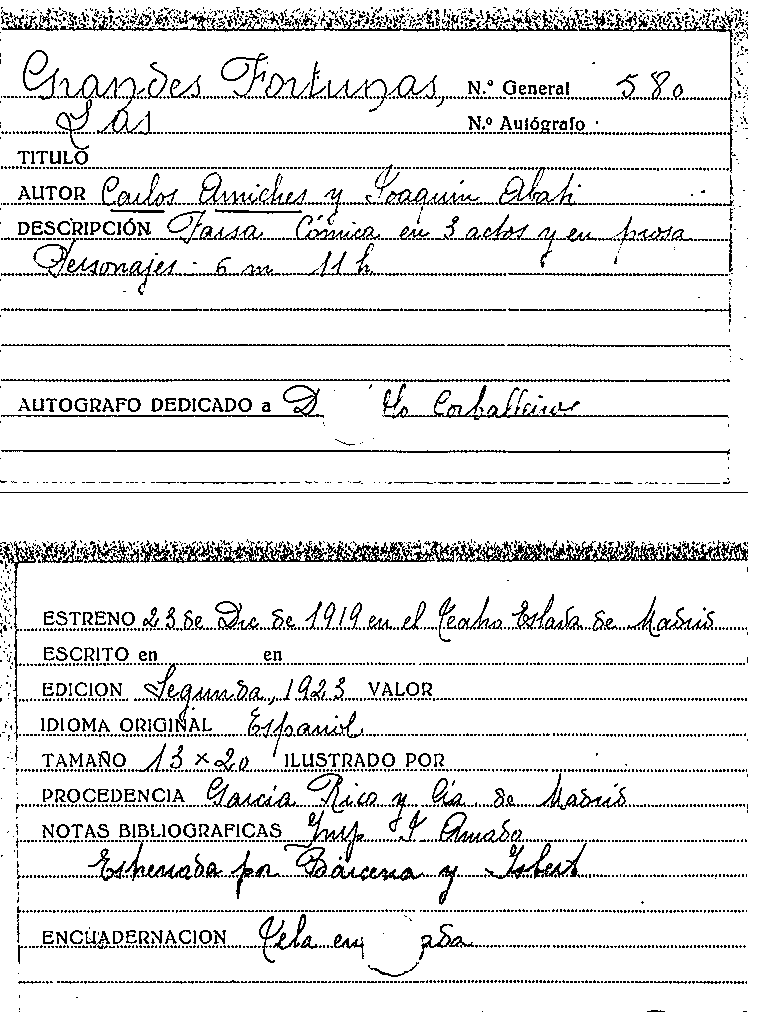 Grandes Fortunas, N.º General 580
Las N.º Autógrafo
TITULO
AUTOR Carlos Arniches y Joaquin Abati
DESCRIPCIÓN Farsa Cómica en 3 actos y en prosa
Personajes - 6 m 11 h
AUTOGRAFO DEDICADO a D
ESTRENO 23 de Dic de 1919 en el Teatro Eslava de Madrid
ESCRITO en en
EDICION Segunda, 1923 VALOR
IDIOMA ORIGINAL Español
TAMAÑO 13 × 20 ILUSTRADO POR
PROCEDENCIA Garcia Rico y Cia de Madrid
NOTAS BIBLIOGRAFICAS Imp Amado
Estrenada por Bárcena y Isbert
ENCUADERNACION Tela en